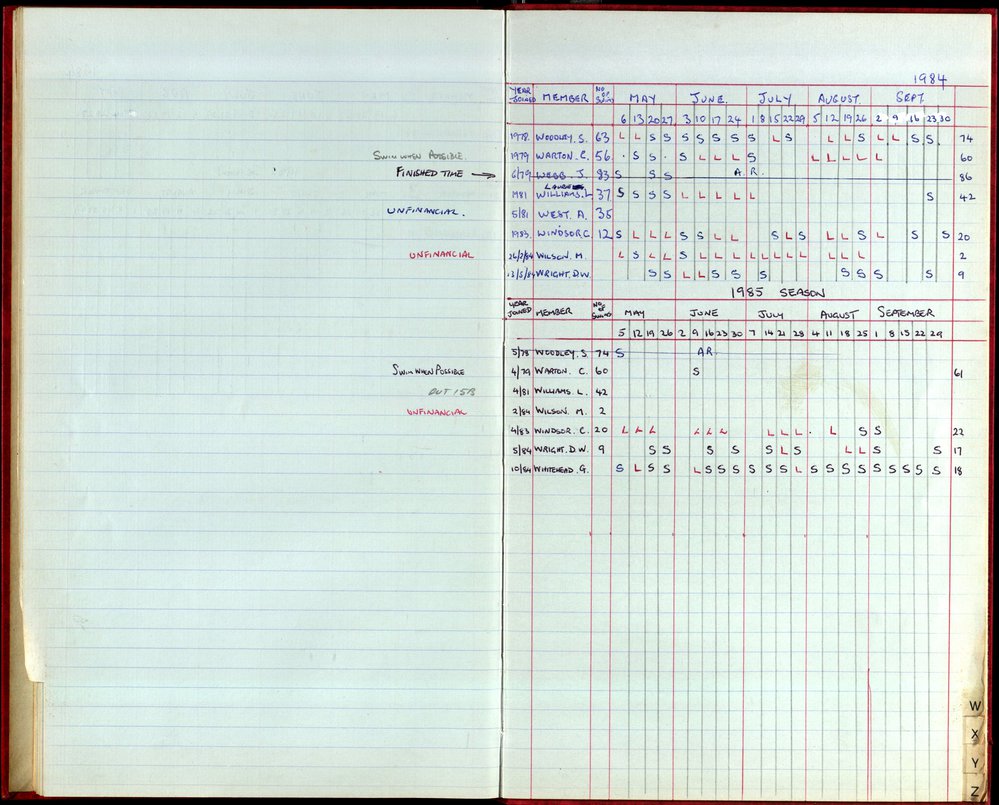 1984
YEAR JOINED MEMBER No of Swims MAY JUNE JULY AUGUST SEPT
6 13 20 27 3 10 17 24 1 8 15 22 29 5 12 19 26 2 9 16 23 30
1978 WOODLEY. S. 63 L L S S S S S S S L S L L S L L S S 74
SWIM WHEN POSSIBLE. 1979 WARTON. C. 56 . S S . S L L L S L L L L L 60
FINISHED TIME → 6/79 WEBB J. 83 S S S A. R. 86
LAURIE
1981 WILLIAMS. L 37 S S S S L L L L L S 42
UNFINANCIAL. 5/81 WEST. A. 35
1983. WINDSOR C. 12 S L L L S S L L S L S L L S L S S 20
UNFINANCIAL 26/2/84 WILSON. M. L S L L S L L L L L L L L L L L 2
13/5/84 WRIGHT. D.W. S S L L S S S S S S S 9
1985 SEASON
YEAR JOINED MEMBER No. of Swims MAY JUNE JULY AUGUST SEPTEMBER
5 12 19 26 2 9 16 23 30 7 14 21 28 4 11 18 25 1 8 15 22 29
5/78 WOODLEY. S. 74 S A R.
SWIM WHEN POSSIBLE 4/79 WARTON. C. 60 S 61
OUT 15/3 4/81 WILLIAMS L. 42
UNFINANCIAL 2/84 WILSON. M. 2
4/83 WINDSOR. C. 20 L L L L L L L L L . L S S 22
5/84 WRIGHT. D.W. 9 S S S S S L S L L S S 17
10/84 WHITEHEAD. G. S L S S L S S S S S S L S S S S S S S S S 18
W
X
Y
Z